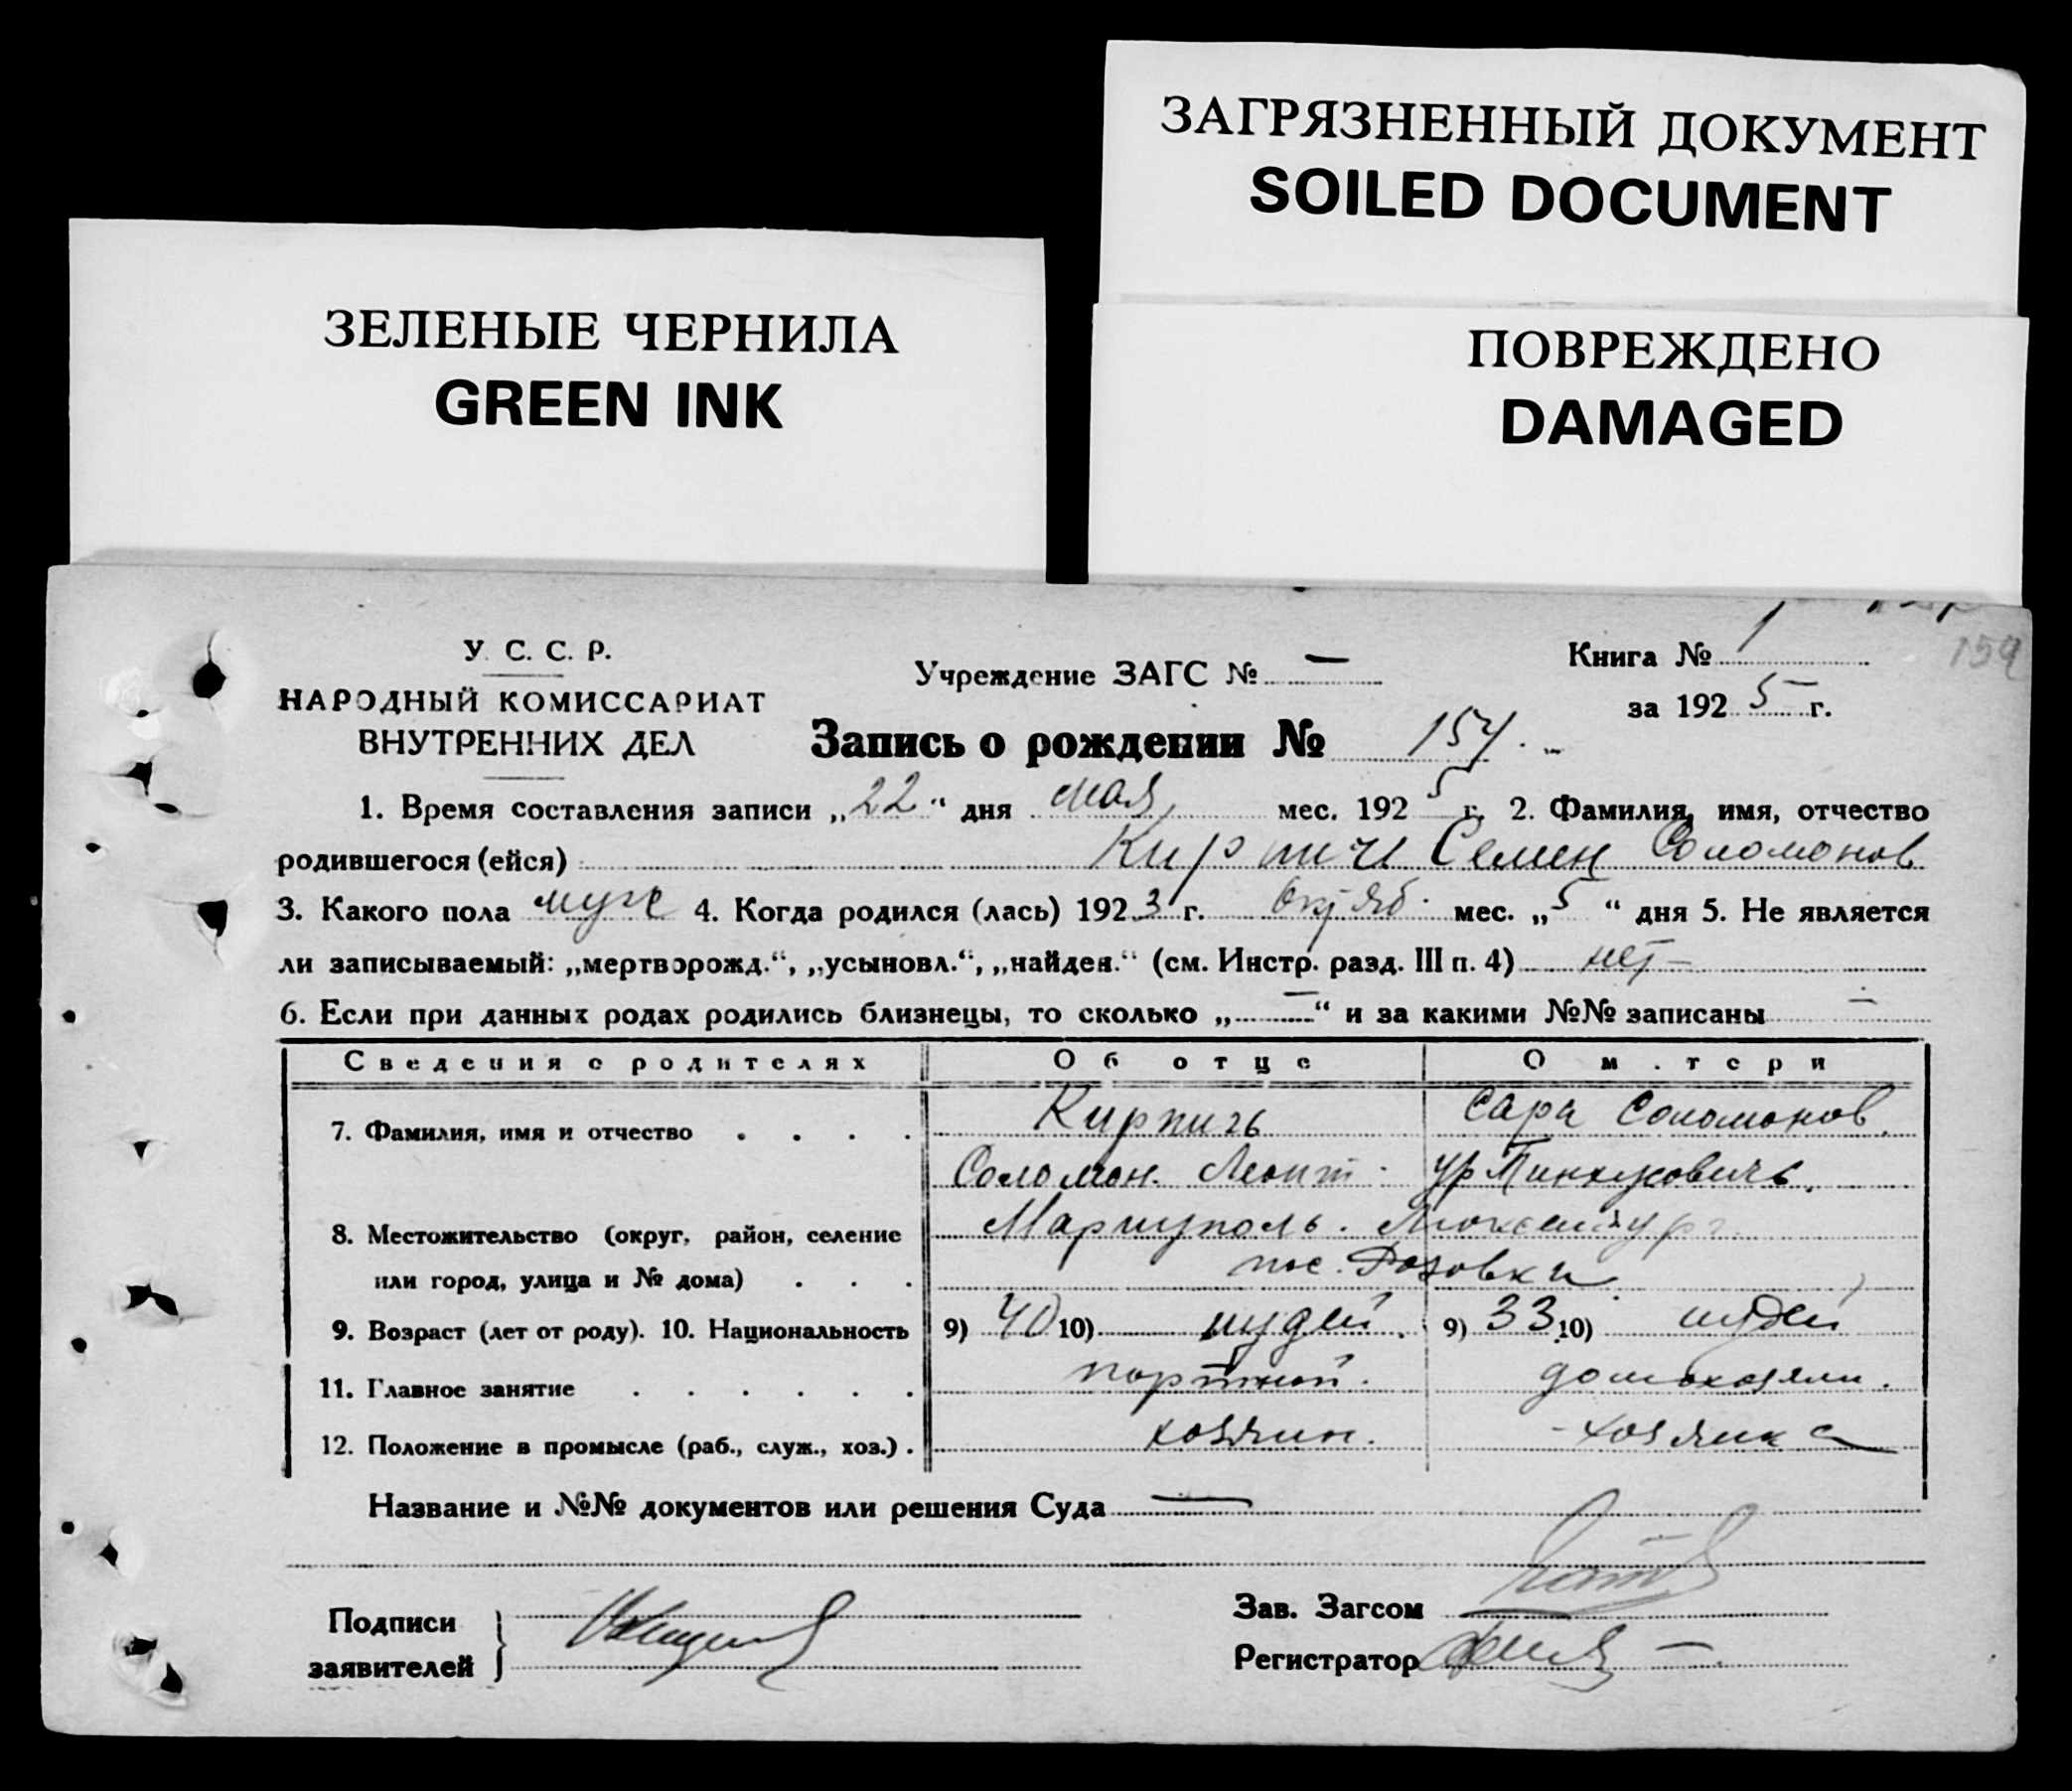 ЗАГРЯЗНЕННЫЙ ДОКУМЕНТ
SOILED DOCUMENT
ЗЕЛЕНЫЕ ЧЕРНИЛА
GREEN INK
ПОВРЕЖДЕНО
DAMAGED
У. С. С. Р.
НАРОДНЫЙ КОМИССАРИАТ
ВНУТРЕННИХ ДЕЛ
Учреждение ЗАГС № —
Книга № 1
159
за 1925 г.
Запись о рождении № 154.
1. Время составления записи „22“ дня мая мес. 1925 г. 2. Фамилия, имя, отчество
родившегося (ейся) Кирпичь Семен Соломонов
3. Какого пола муж 4. Когда родился (лась) 1923 г. Октяб. мес. „5“ дня 5. Не является
ли записываемый: „мертворожд.“, „усыновл.“, „найден.“ (см. Инстр. разд. III п. 4) нет —
6. Если при данных родах родились близнецы, то сколько „—“ и за какими №№ записаны —
Сведения о родителях Об отце О м.тери
7. Фамилия, имя и отчество . . . . Кирпичь Сара Соломонов.
Соломон. Леонт. ур Пинхусовичь.
8. Местожительство (округ, район, селение Мариуполь. Люксембург
или город, улица и № дома) . . . пос. Розовка
9. Возраст (лет от роду). 10. Национальность 9) 40 10) иудей. 9) 33 10) иудей
11. Главное занятие . . . . . . портной. домохозяли.
12. Положение в промысле (раб., служ., хоз.) . хозяин. - хозяика
Название и №№ документов или решения Суда —
Подписи
заявителей
Зав. Загсом
Регистратор